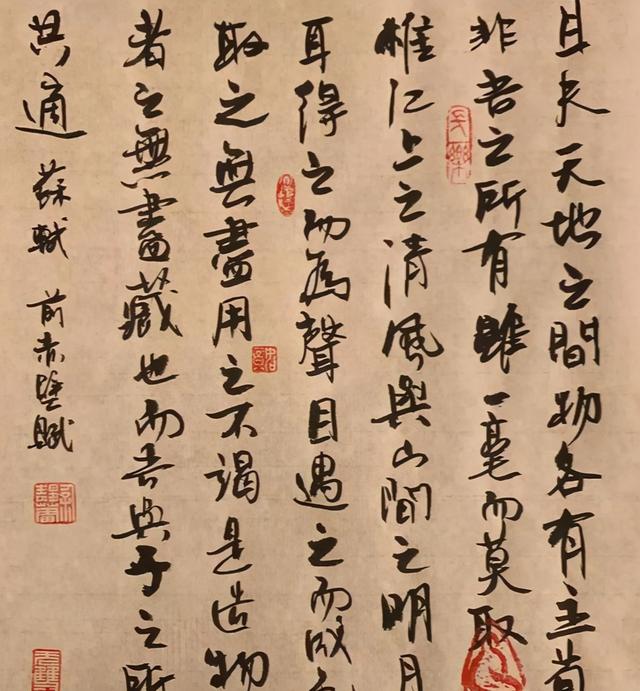 且夫天地之間物各有主苟
非吾之所有雖一毫而莫取
惟江上之清風與山間之明月
耳得之而為聲目遇之而成色
取之無盡用之不竭是造物
者之無盡藏也而吾與子之所
共適 蘇軾 前赤壁賦